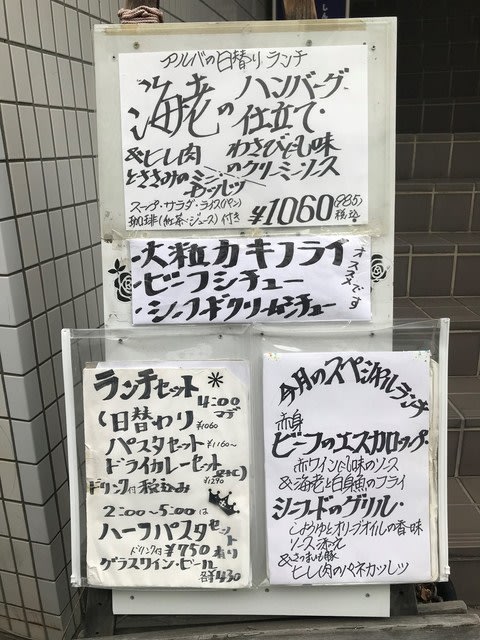 アルバの日替り ランチ
海老のハンバーグ
仕立て・
わさびだし味
のクリーミーソース
&ヒレ肉
とささみのミニ
カツレツ
スープ・サラダ・ライス(パン)
珈琲(紅茶・ジュース)付き
¥1060 (985)
税込
・大粒カキフライ
・ビーフシチュー
・シーフードクリームシチュー
オススメです
ランチセット *
4:00マデ
(日替わり ¥1060
パスタセット ¥1160〜
ドライカレーセット
¥1290
ドリンク付 税込み
2:00〜5:00は
ハーフパスタセット
ドリンク付 ¥750 有り
グラスワイン・ビール
各¥430
今月のスペシャルランチ
赤身
ビーフのエスカロップ・
赤ワインだし味のソース
&海老と白身魚のフライ
シーフードのグリル・
しょうゆとオリーブオイルの香味
ソース添え
&さつまいも豚
ヒレ肉のパネカツレツ